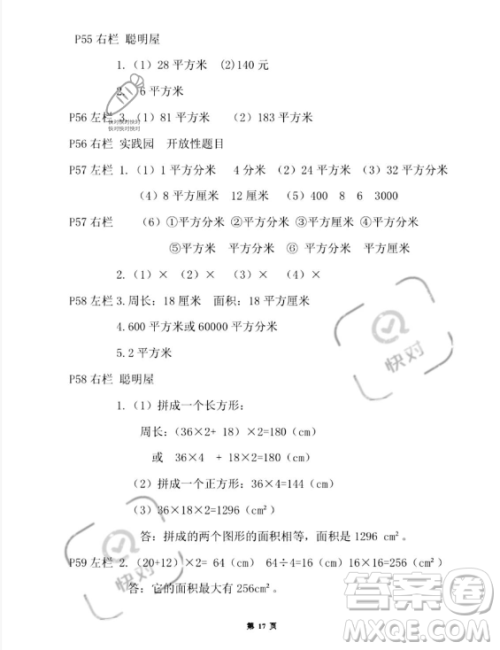 P55右栏 聪明屋
1.（1）28 平方米 （2）140 元
2. 6 平方米
P56 左栏 3.（1）81 平方米 （2）183 平方米
P56 右栏 实践园 开放性题目
P57 左栏 1.（1）1 平方分米 4 分米 （2）24 平方米 （3）32 平方米
（4）8 平方厘米 12 厘米 （5）400 8 6 3000
P57 右栏 （6）①平方分米 ②平方分米 ③平方厘米 ④平方分米
⑤平方米 平方分米 ⑥ 平方分米 平方厘米
2.（1）× （2）× （3）× （4）×
P58 左栏 3.周长：18 厘米 面积：18 平方厘米
4.600平方米或60000平方分米
5.2平方米
P58 右栏 聪明屋
1.（1）拼成一个长方形：
周长：（36×2+ 18）×2=180（cm）
或 36×4 + 18×2=180（cm）
（2）拼成一个正方形：36×4=144（cm）
（3）36×18×2=1296（cm²）
答：拼成的两个图形的面积相等，面积是 1296 cm²。
P59 左栏 2.（20+12）×2= 64（cm） 64÷4=16（cm）16×16=256（cm²）
答：它的面积最大有 256cm²。
第 17 页
快对
快对
答案圈
MXQE.COM